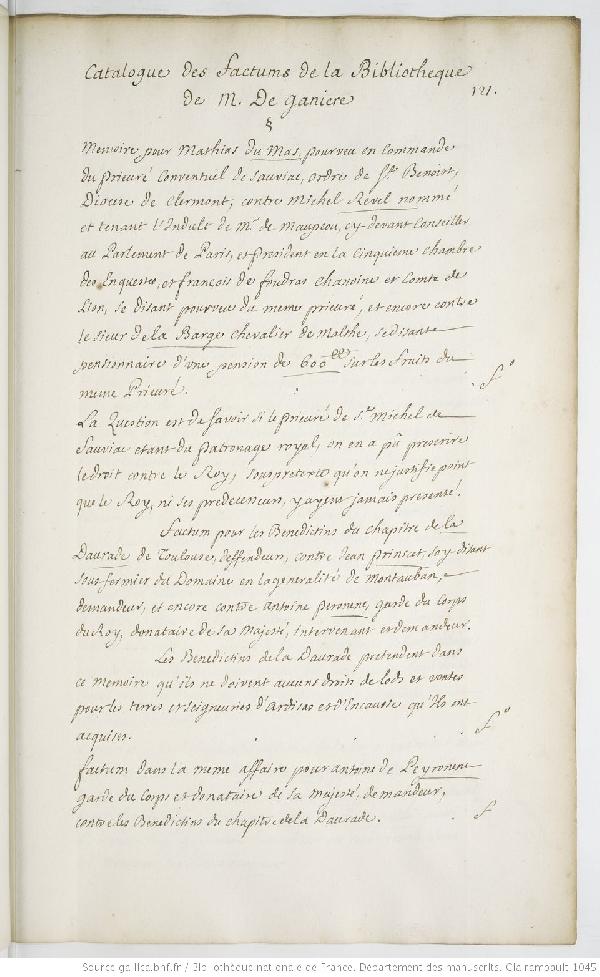 Catalogue des factums de la Bibliotheque
de M. De ganiere
121.
§
Memoire pour Mathias du Mas, pourveu en Commande
du prieuré Conventuel de Sauviac, ordre de St. Benoist,
Diocese de Clermont, contre Michel Revel nommé
et tenant l'Indult de Mr. de Maupeou, cy-devant Conseiller
au Parlement de Paris, et president en la Cinquieme Chambre
des Enquestes, et francois de foudras Chanoine et Comte de
Lion, se disant pourveu du meme prieuré, et encore contre
le Sieur de la Barge Chevalier de Malthe, se disant
pensionnaire d'une pension de 600ll sur les fruits du
meme Prieuré.
fo
La Question est de savoir si le prieuré de St. Michel de
Sauviac etant du patronage royal, on en a pû prescrire
le droit contre le Roy, sous pretexte qu'on ne justifie point
que le Roy, ni ses predecesseurs, y ayent jamais presenté.
Factum pour les Benedictins du chapitre de la
Daurade de Toulouse, deffendeurs, contre Jean princat, soy disant
sous fermier du Domaine en la generalité de Montauban,
demandeur, et encore contre Antoine peronene, garde du Corps
du Roy, donataire de sa Majesté, intervenant et demandeur.
Les Benedictins de la Daurade pretendent dans
ce Memoire qu'ils ne doivent aucuns droits de lods et ventes
pour les terres et seigneuries d'Ardisas et d'Encausse qu'ils ont
acquises.
fo
factum dans la meme affaire pour antoine de Peyronene
garde du Corps et donataire de sa Majesté, demandeur,
contre les Benedictins du chapitre de la Daurade.
f
Source gallica.bnf.fr / Bibliothèque nationale de France. Département des manuscrits. Clairambault 1045